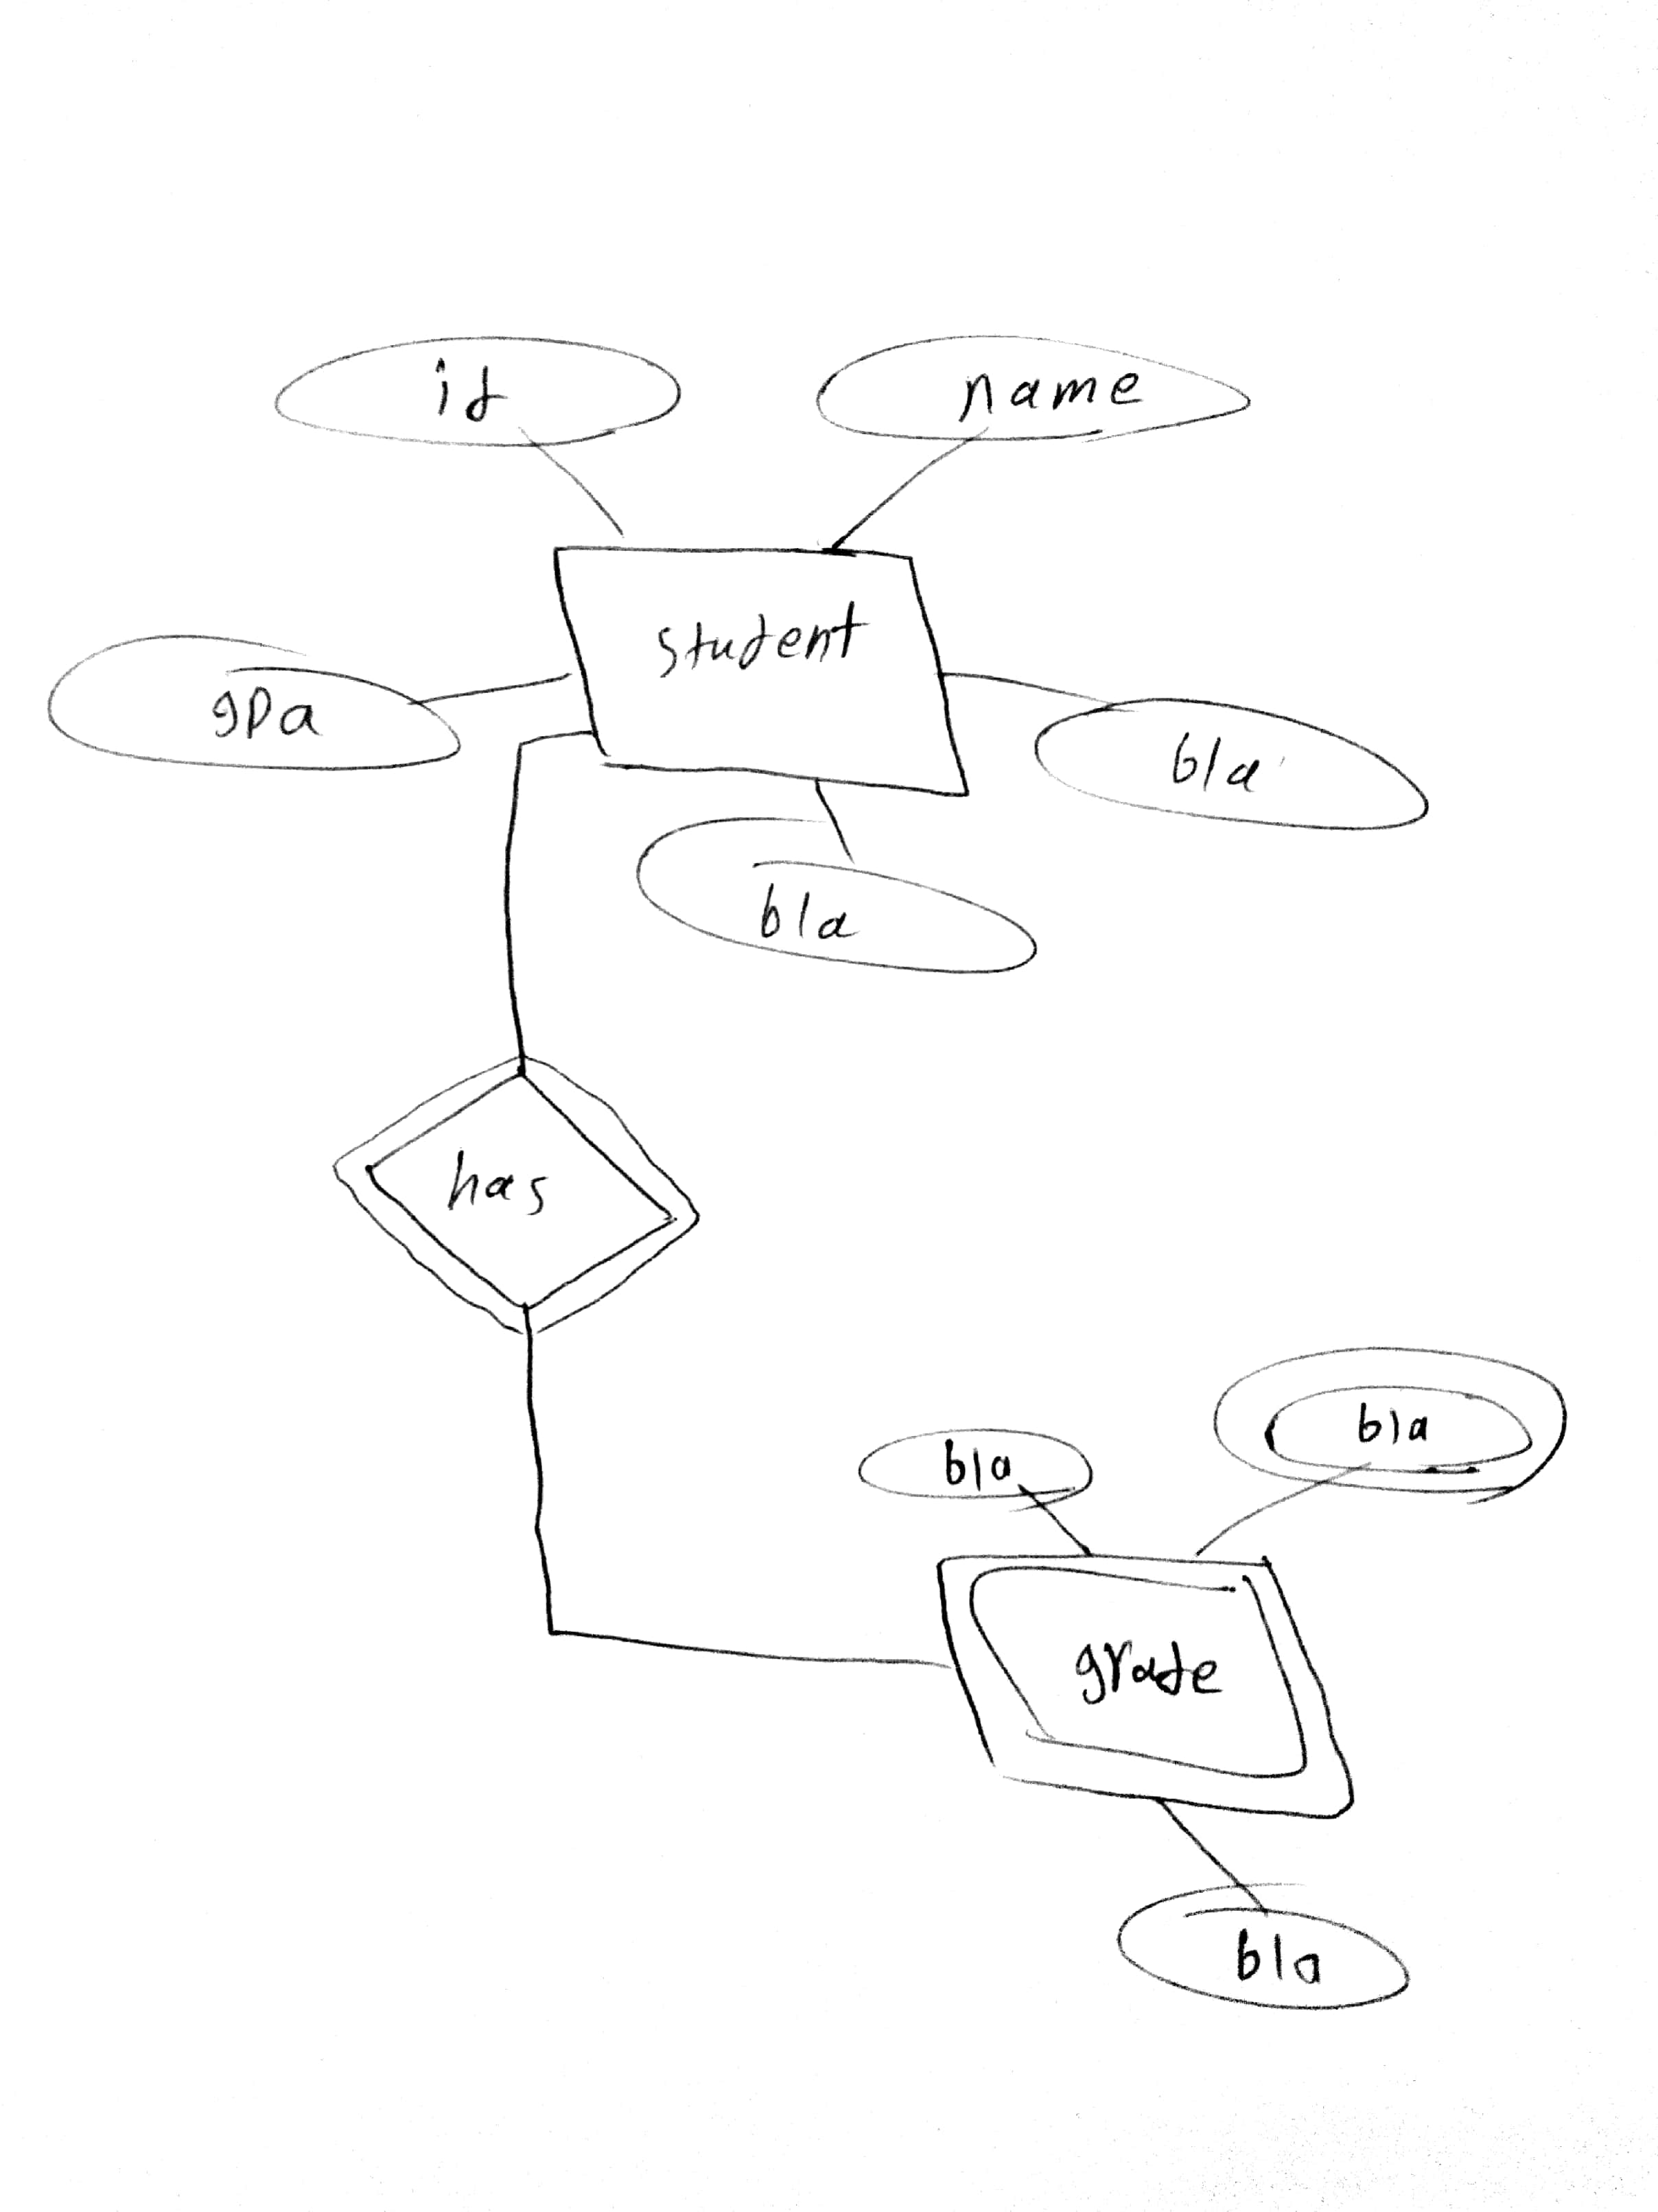 id
name
student
gpa
bla
bla
has
bla
bla
grade
bla